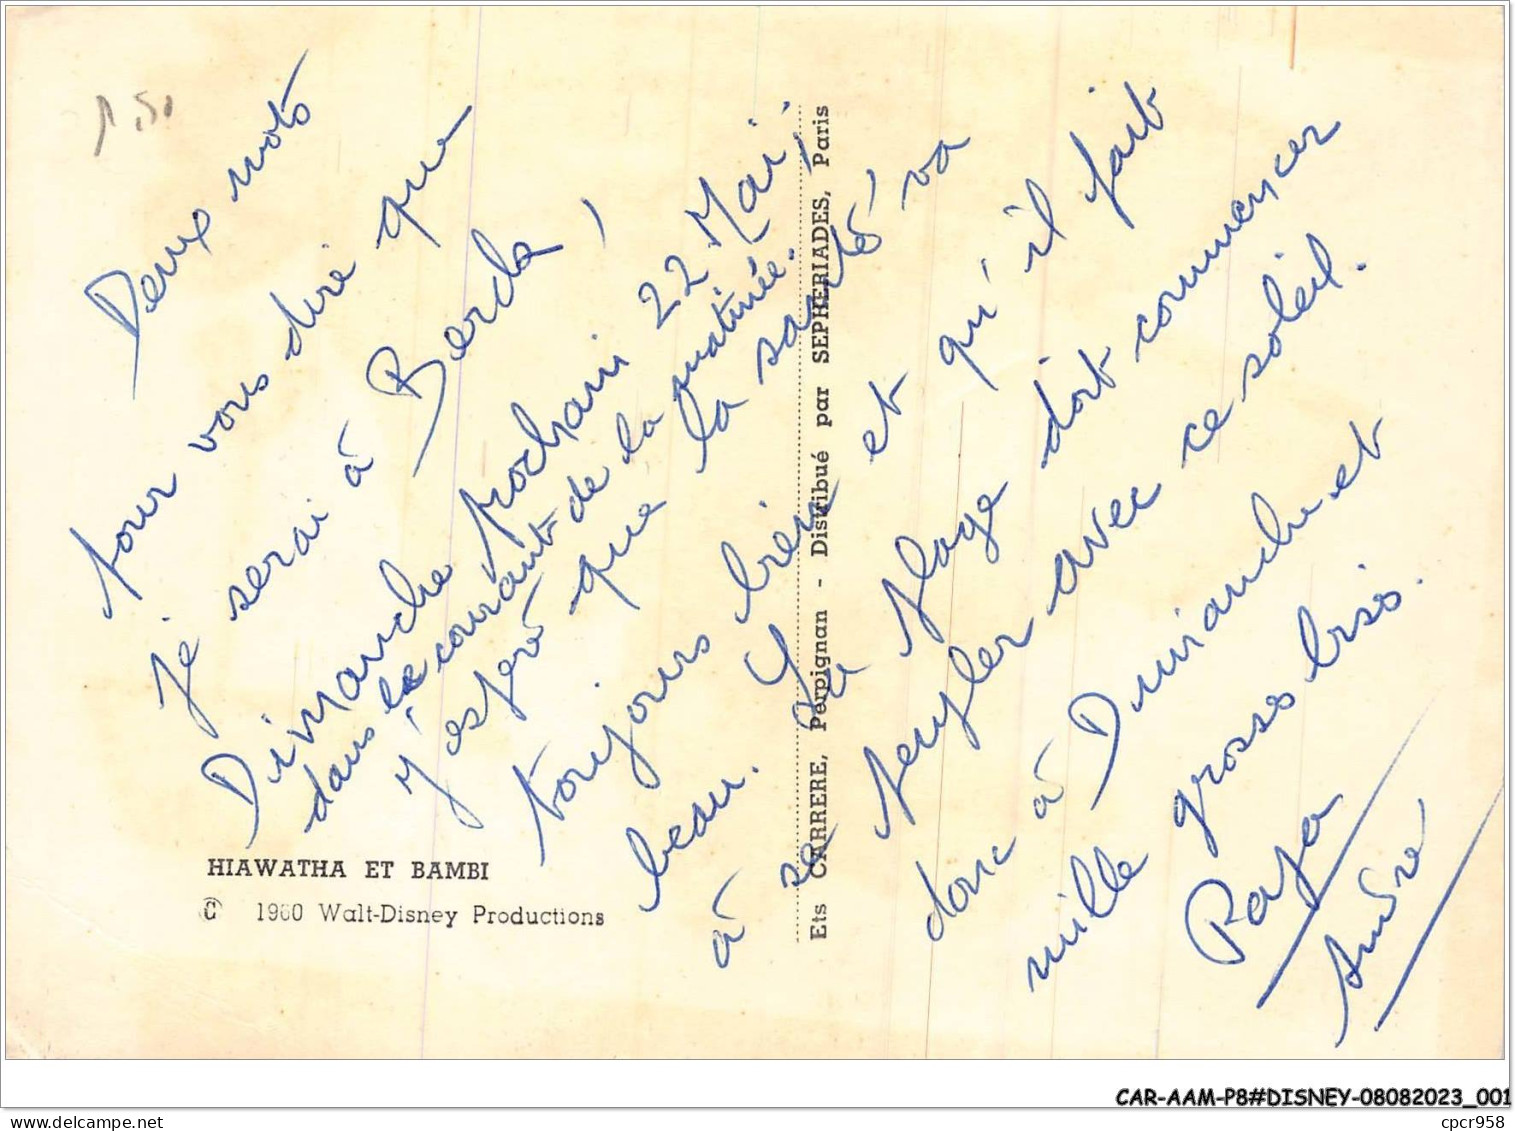 Deux mots
pour vous dire que
je serai à Berck,
Dimanche prochain 22 Mai,
dans le courant de la matinée.
J'espère que la santé va
toujours bien et qu'il fait
beau. La plage doit commencer
à se peupler avec ce soleil.
donc à Dimanche et
mille grosses bises.
Papa
André
HIAWATHA ET BAMBI
© 1960 Walt-Disney Productions
Ets CARRERE, Perpignan - Distribué par SEPHERIADES, Paris
CAR-AAM-P8#DISNEY-08082023_001
cpcr958